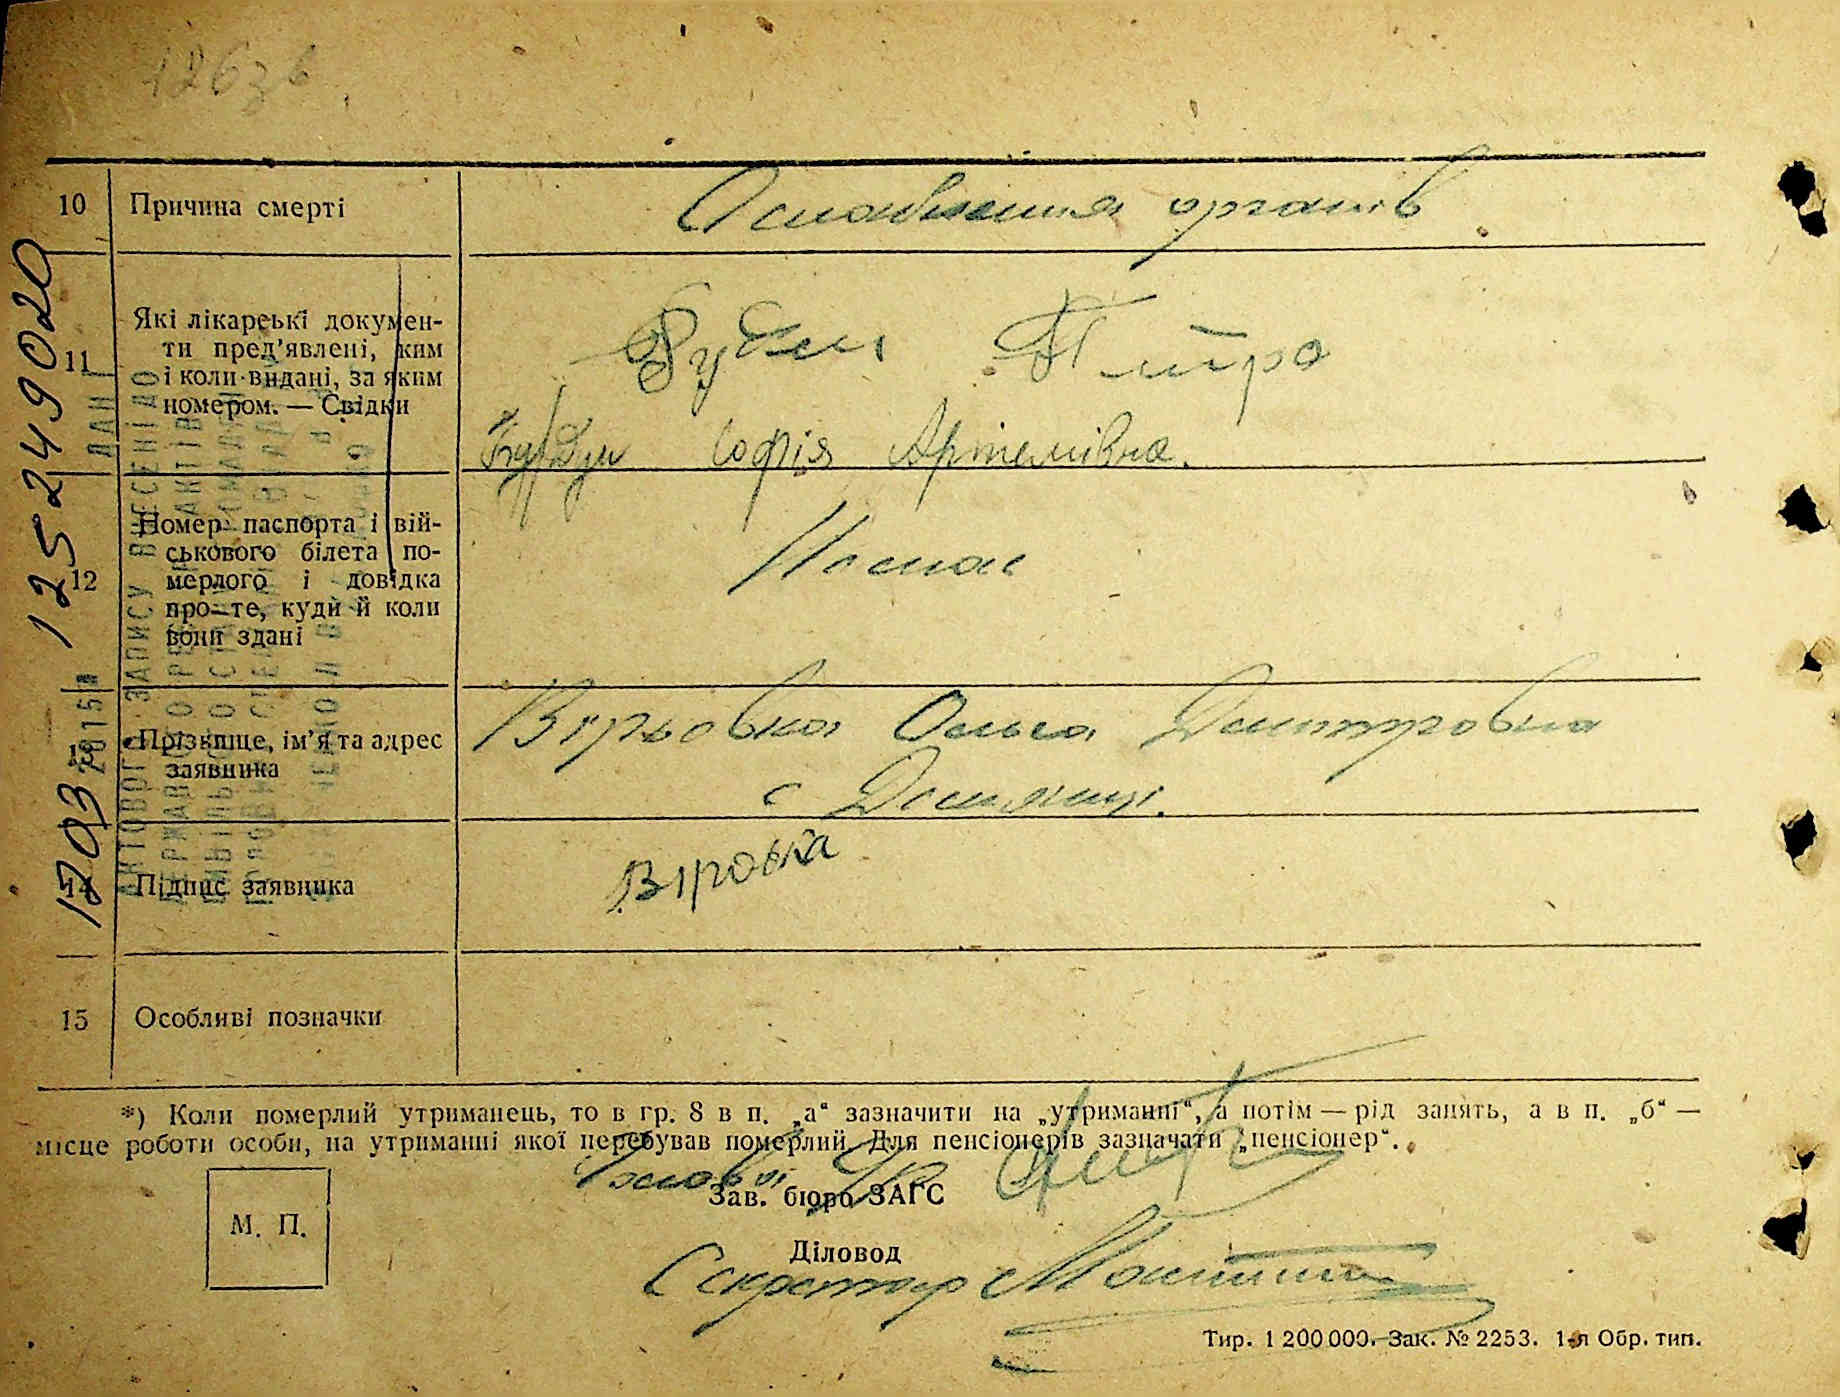 10 Причина смерті Ослаблення органів
11 Які лікарські докумен-
ти пред’явлені, ким
і коли видані, за яким
номером. — Свідки
Петро
Софія Артемівна.
12 Номер паспорта і вій-
ськового білета по-
мерлого і довідка
про те, куди й коли
вони здані
Немає
13 Прізвище, ім’я та адрес
заявника
Вірьовка Ольга Дмитровна
с
14 Підпис заявника Віровка
15 Особливі позначки
125249020
1203 2015
АКТОВОГО ЗАПИСУ ВНЕСЕНІ ДО
*) Коли померлий утриманець, то в гр. 8 в п. „а“ зазначити на „утриманні“, а потім — рід занять, а в п. „б“ —
місце роботи особи, на утриманні якої перебував померлий. Для пенсіонерів зазначати „пенсіонер“.
Зав. бюро ЗАГС
М. П.
Діловод
Секретар
Тир. 1 200 000. Зак. № 2253. 1-я Обр. тип.